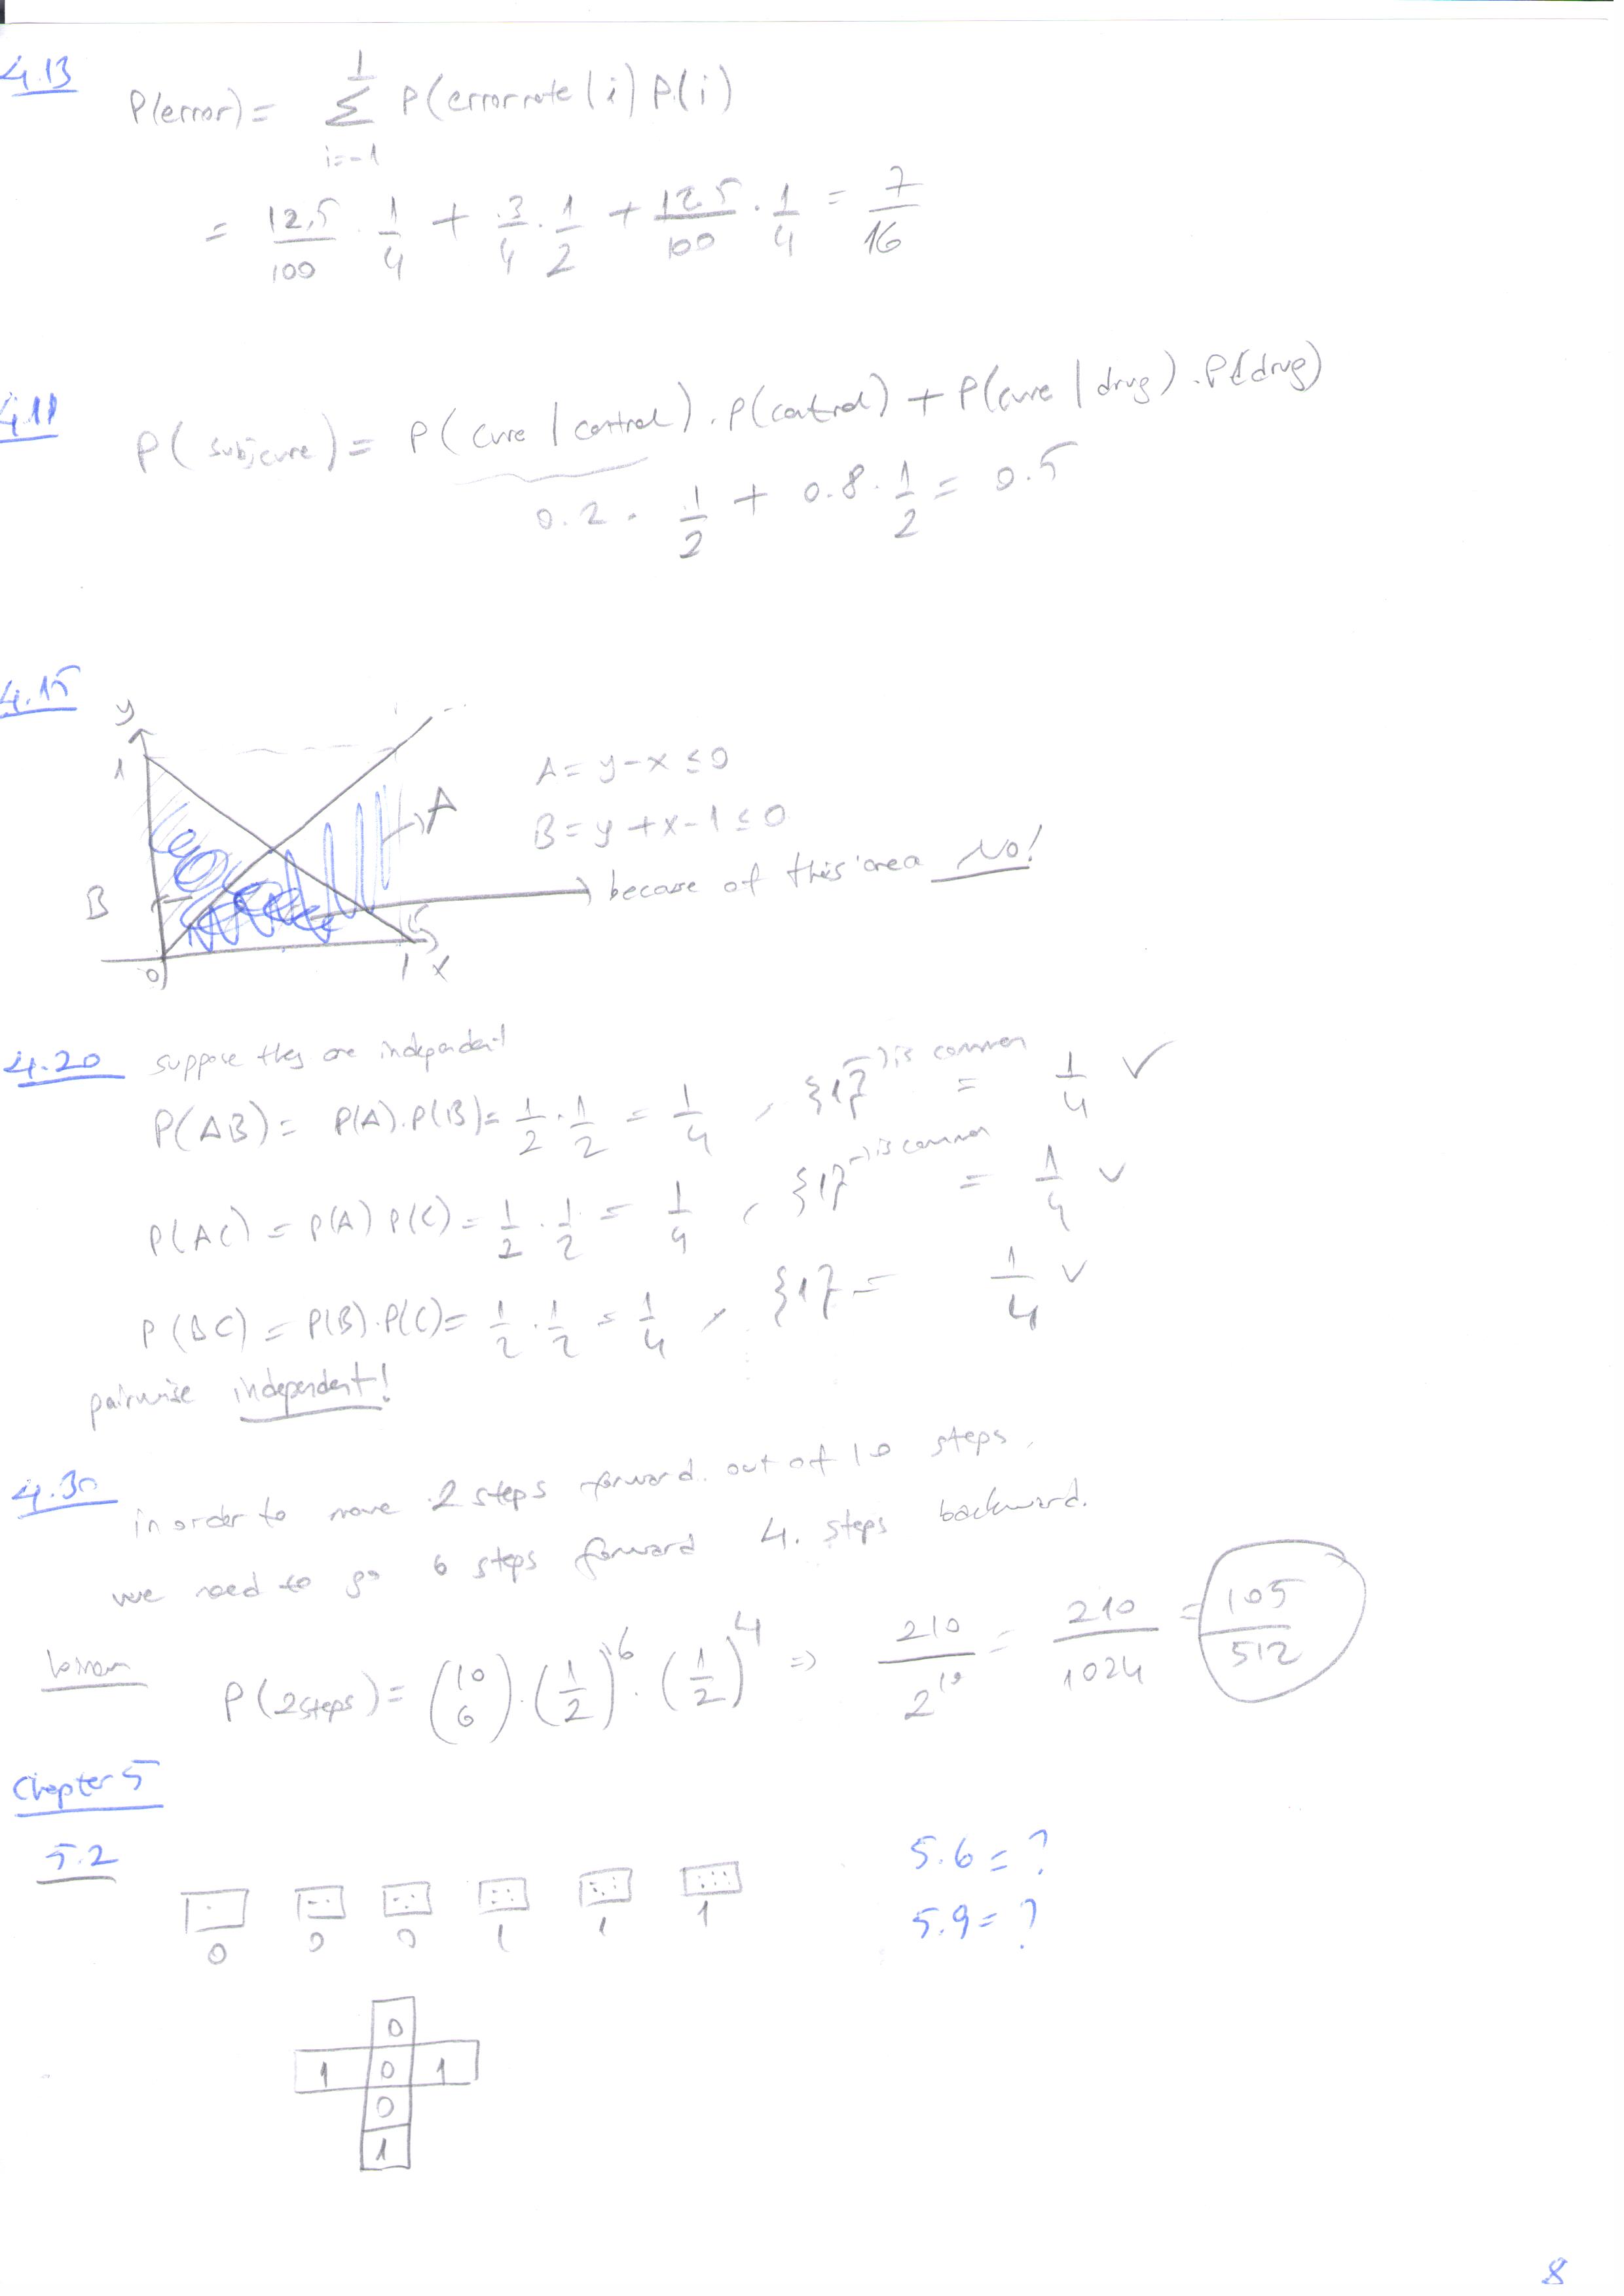 4.13
P(error) = Σ_{i=-1}^{1} P(errorrate | i) P(i)
= 12,5/100 · 1/4 + 3/4 · 1/2 + 12.5/100 · 1/4 = 7/16
4.11
P( subjcure) = P( cure | control) . P(control) + P(cure | drug) . P(drug)
0.2 . 1/2 + 0.8 . 1/2 = 0.5
4.15
y
1
A = y-x ≤ 0
A
B = y +x-1 ≤ 0
B
becase of this area No!
0 1 x
4.20 suppose they are independent
P(AB) = P(A).P(B) = 1/2 . 1/2 = 1/4 , {1} → is common = 1/4 ✓
P(AC) = P(A) P(C) = 1/2 . 1/2 = 1/4 , {1} → is common = 1/4 ✓
P(BC) = P(B).P(C) = 1/2 . 1/2 = 1/4 , {1} = 1/4 ✓
pairwise independent!
4.30 in order to move 2 steps forward. out of 10 steps,
we need to go 6 steps forward 4. steps backward.
binom P(2steps) = (10 6) . (1/2)^6 . (1/2)^4 => 210/2^10 = 210/1024 = 105/512
Chapter 5
5.2
5.6 = ?
0 0 0 1 1 1
5.9 = ?
0
1 0 1
0
1
8